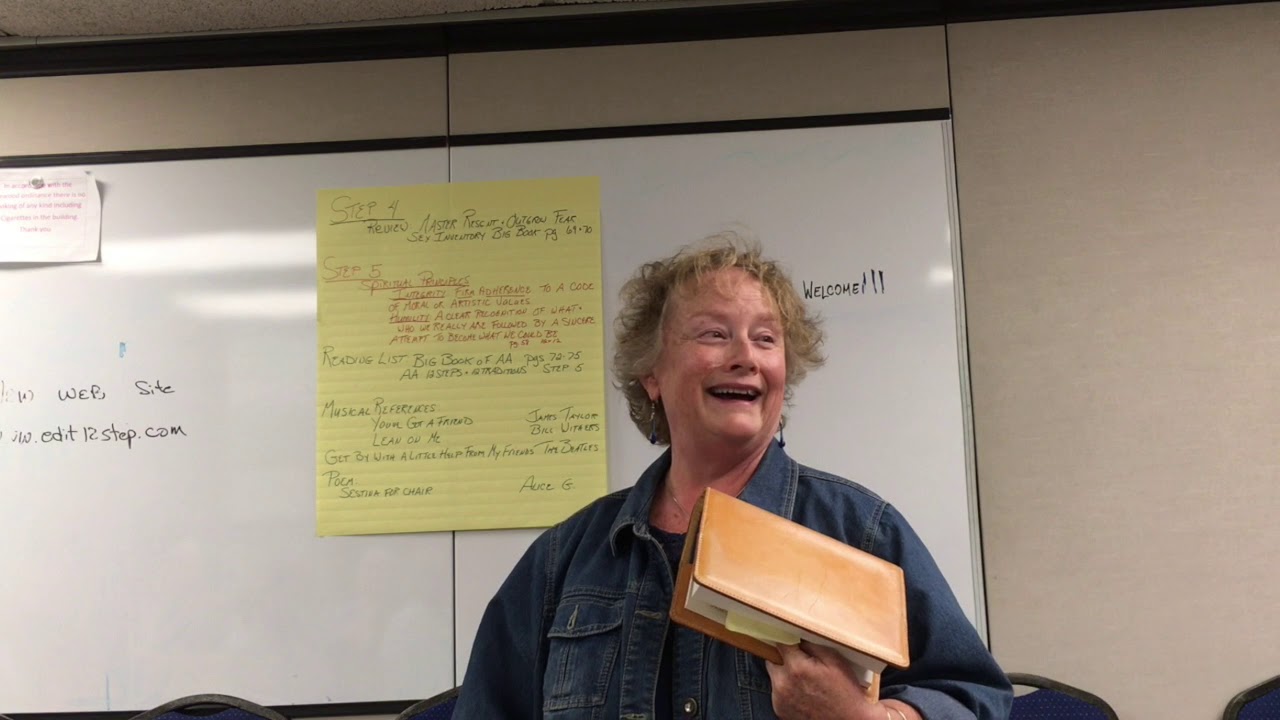 In accordance with the
ordinance there is no
smoking of any kind including
Cigarettes in the building.
Thank you
WEB Site
.edit12step.com
STEP 4
REVIEW MASTER RESENT. OUTGROW FEAR
SEX INVENTORY BIG BOOK pg 69-70
STEP 5
SPIRITUAL PRINCIPLES
INTEGRITY FIRM ADHERENCE TO A CODE
OF MORAL OR ARTISTIC VALUES
HUMILITY A CLEAR RECOGNITION OF WHAT.
WHO WE REALLY ARE FOLLOWED BY A SINCERE
ATTEMPT TO BECOME WHAT WE COULD BE
pg 58 12+12
READING LIST BIG BOOK OF AA pgs 72-75
AA 12 STEPS + 12 TRADITIONS STEP 5
MUSICAL REFERENCES
YOUVE GOT A FRIEND JAMES TAYLOR
LEAN ON ME BILL WITHERS
GET BY WITH A LITTLE HELP FROM MY FRIENDS THE BEATLES
POEM
SESTINA FOR CHAIR ALICE G.
WELCOME!!!